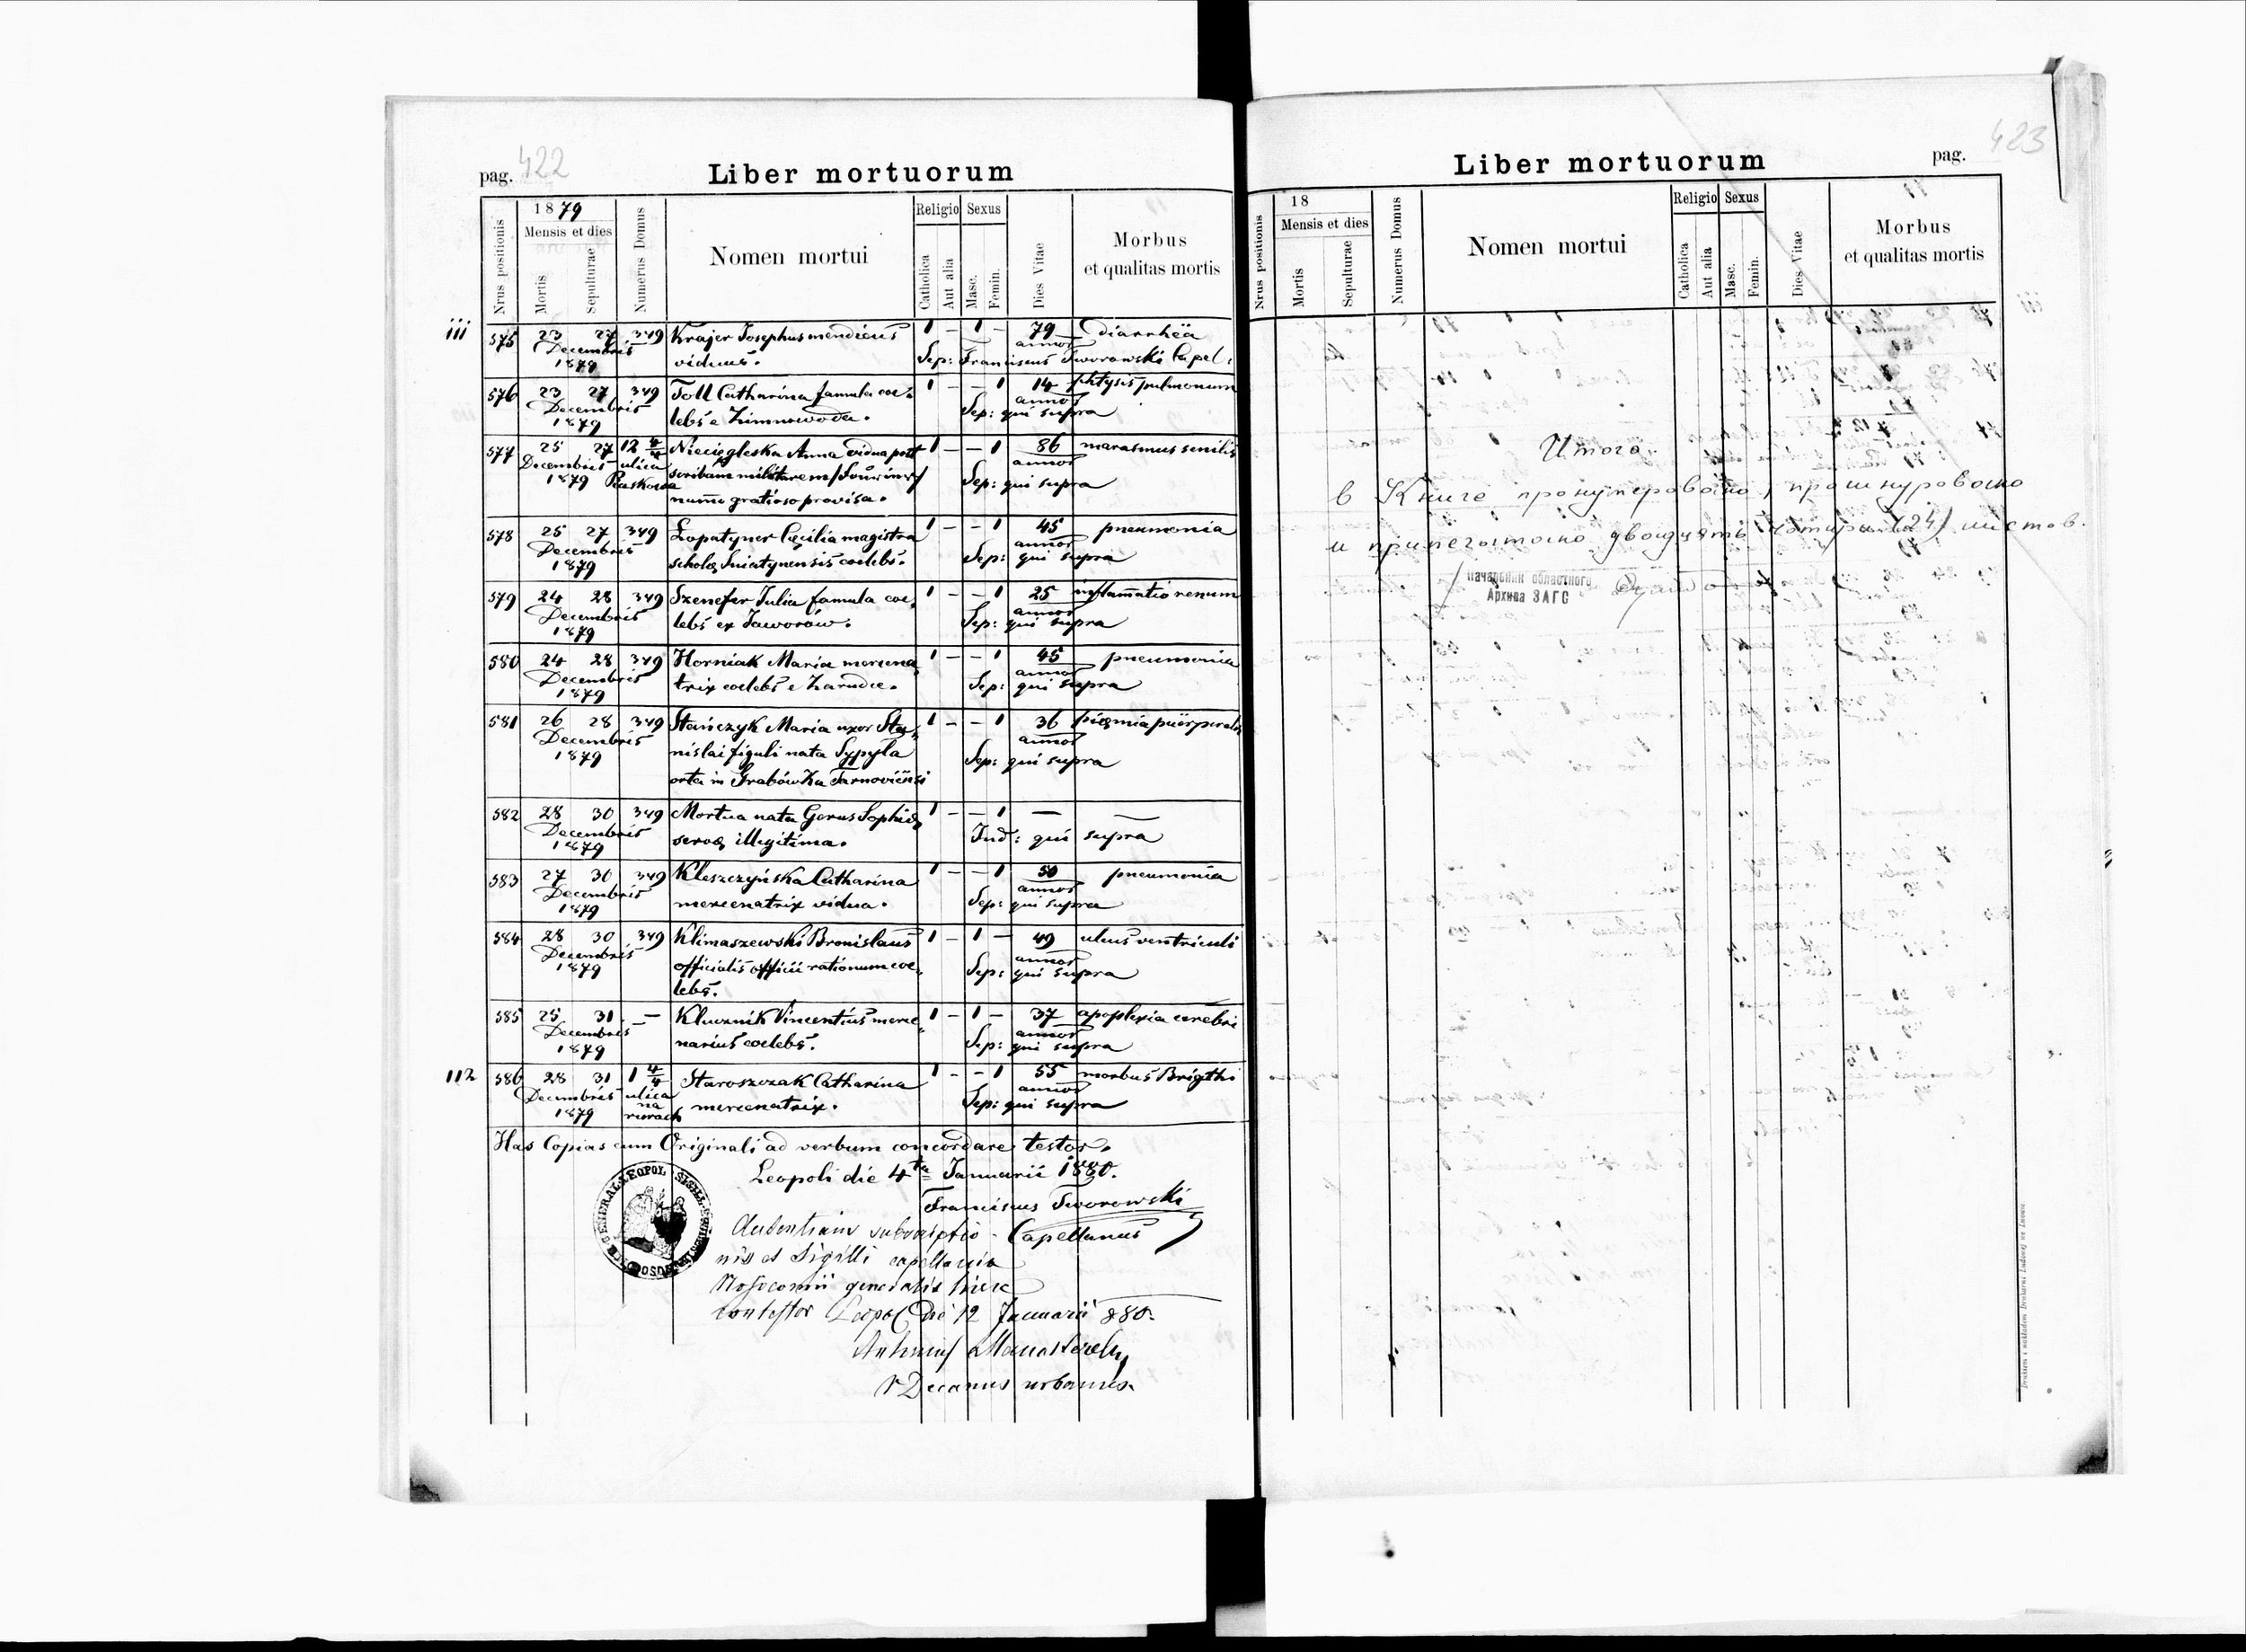 pag. 422
Liber mortuorum
Nrus positionis
1879
Mensis et dies
Mortis
Sepulturae
Numerus Domus
Nomen mortui
Religio
Catholica
Aut alia
Sexus
Masc.
Femin.
Dies Vitae
Morbus
et qualitas mortis
iii 575 23 27 349 Krajer Josephus mendicus 1 - 1 - 79 diarrhëa
Decembris annor
1879 viduus. Sep: Franciscus Tworowski Capel:
576 23 27 349 Toll Catharina famula coe- 1 - - 1 14 phtysis pulmonum
Decembris annor
1879 lebs e Zimnowoda. Sep: qui supra
577 25 27 12 4/4 Niecięgleska Anna vidua post 1 - - 1 86 marasmus senilis
Decembris ulica annor
1879 Piaskowa scribam militarem Sep: qui supra
numo gratioso provisa.
578 25 27 349 Łopatyner Cęcilia magistra 1 - - 1 45 pneumonia
Decembris annor
1879 scholę Sniatynensis coelebs. Sep: qui supra
579 24 28 349 Szenefer Julia famula coe, 1 - - 1 25 inflamatio renum
Decembris annor
1879 lebs ex Jaworów. Sep: qui supra
580 24 28 349 Horniak Maria mercena, 1 - - 1 45 pneumonia
Decembris annor
1879 trix coelebs e Zarudce. Sep: qui supra
581 26 28 349 Stańczyk Maria uxor Sta, 1 - - 1 36 pięmia püerperalis
Decembris annor
1879 nislai figuli nata Sypyła Sep: qui supra
orta in Grabówka Tarnoviensi
582 28 30 349 Mortua nata Gerus Sophię 1 - - 1 — —
Decembris
1879 servę illegitima. Ind: qui supra
583 27 30 349 Kleszczyńska Catharina 1 - - 1 50 pneumonia
Decembris annor
1879 mercenatrix vidua. Sep: qui supra
584 28 30 349 Klimaszewski Bronislaus 1 - 1 - 49 ulcus ventriculi
Decembris annor
1879 officialis officii rationum coe, Sep: qui supra
lebs.
585 25 31 — Klucznik Vincentius merce, 1 - 1 - 37 apoplexia cerebri
Decembris annor
1879 narius coelebs. Sep: qui supra
112 586 28 31 1 4/4 Staroszczak Catharina 1 - - 1 55 morbus Brigthi
Decembris ulica annor
1879 na rurach mercenatrix. Sep: qui supra
Has Copias cum Originali ad verbum concordare testor.
Leopoli die 4ta Januarii 1880.
Franciscus Tworowski
Capellanus
nis et Sigilli capellania
Nosocomii generalis hisce
contestor Leopol die 12 Januarii 880.
V Decanus urbanus.
Liber mortuorum
pag. 423
Nrus positionis
18
Mensis et dies
Mortis
Sepulturae
Numerus Domus
Nomen mortui
Religio
Catholica
Aut alia
Sexus
Masc.
Femin.
Dies Vitae
Morbus
et qualitas mortis
Итого
в Книге пронумеровано, прошнуровано
и припечатано двадцать четыре (24) листов.
Начальник областного
Архива ЗАГС